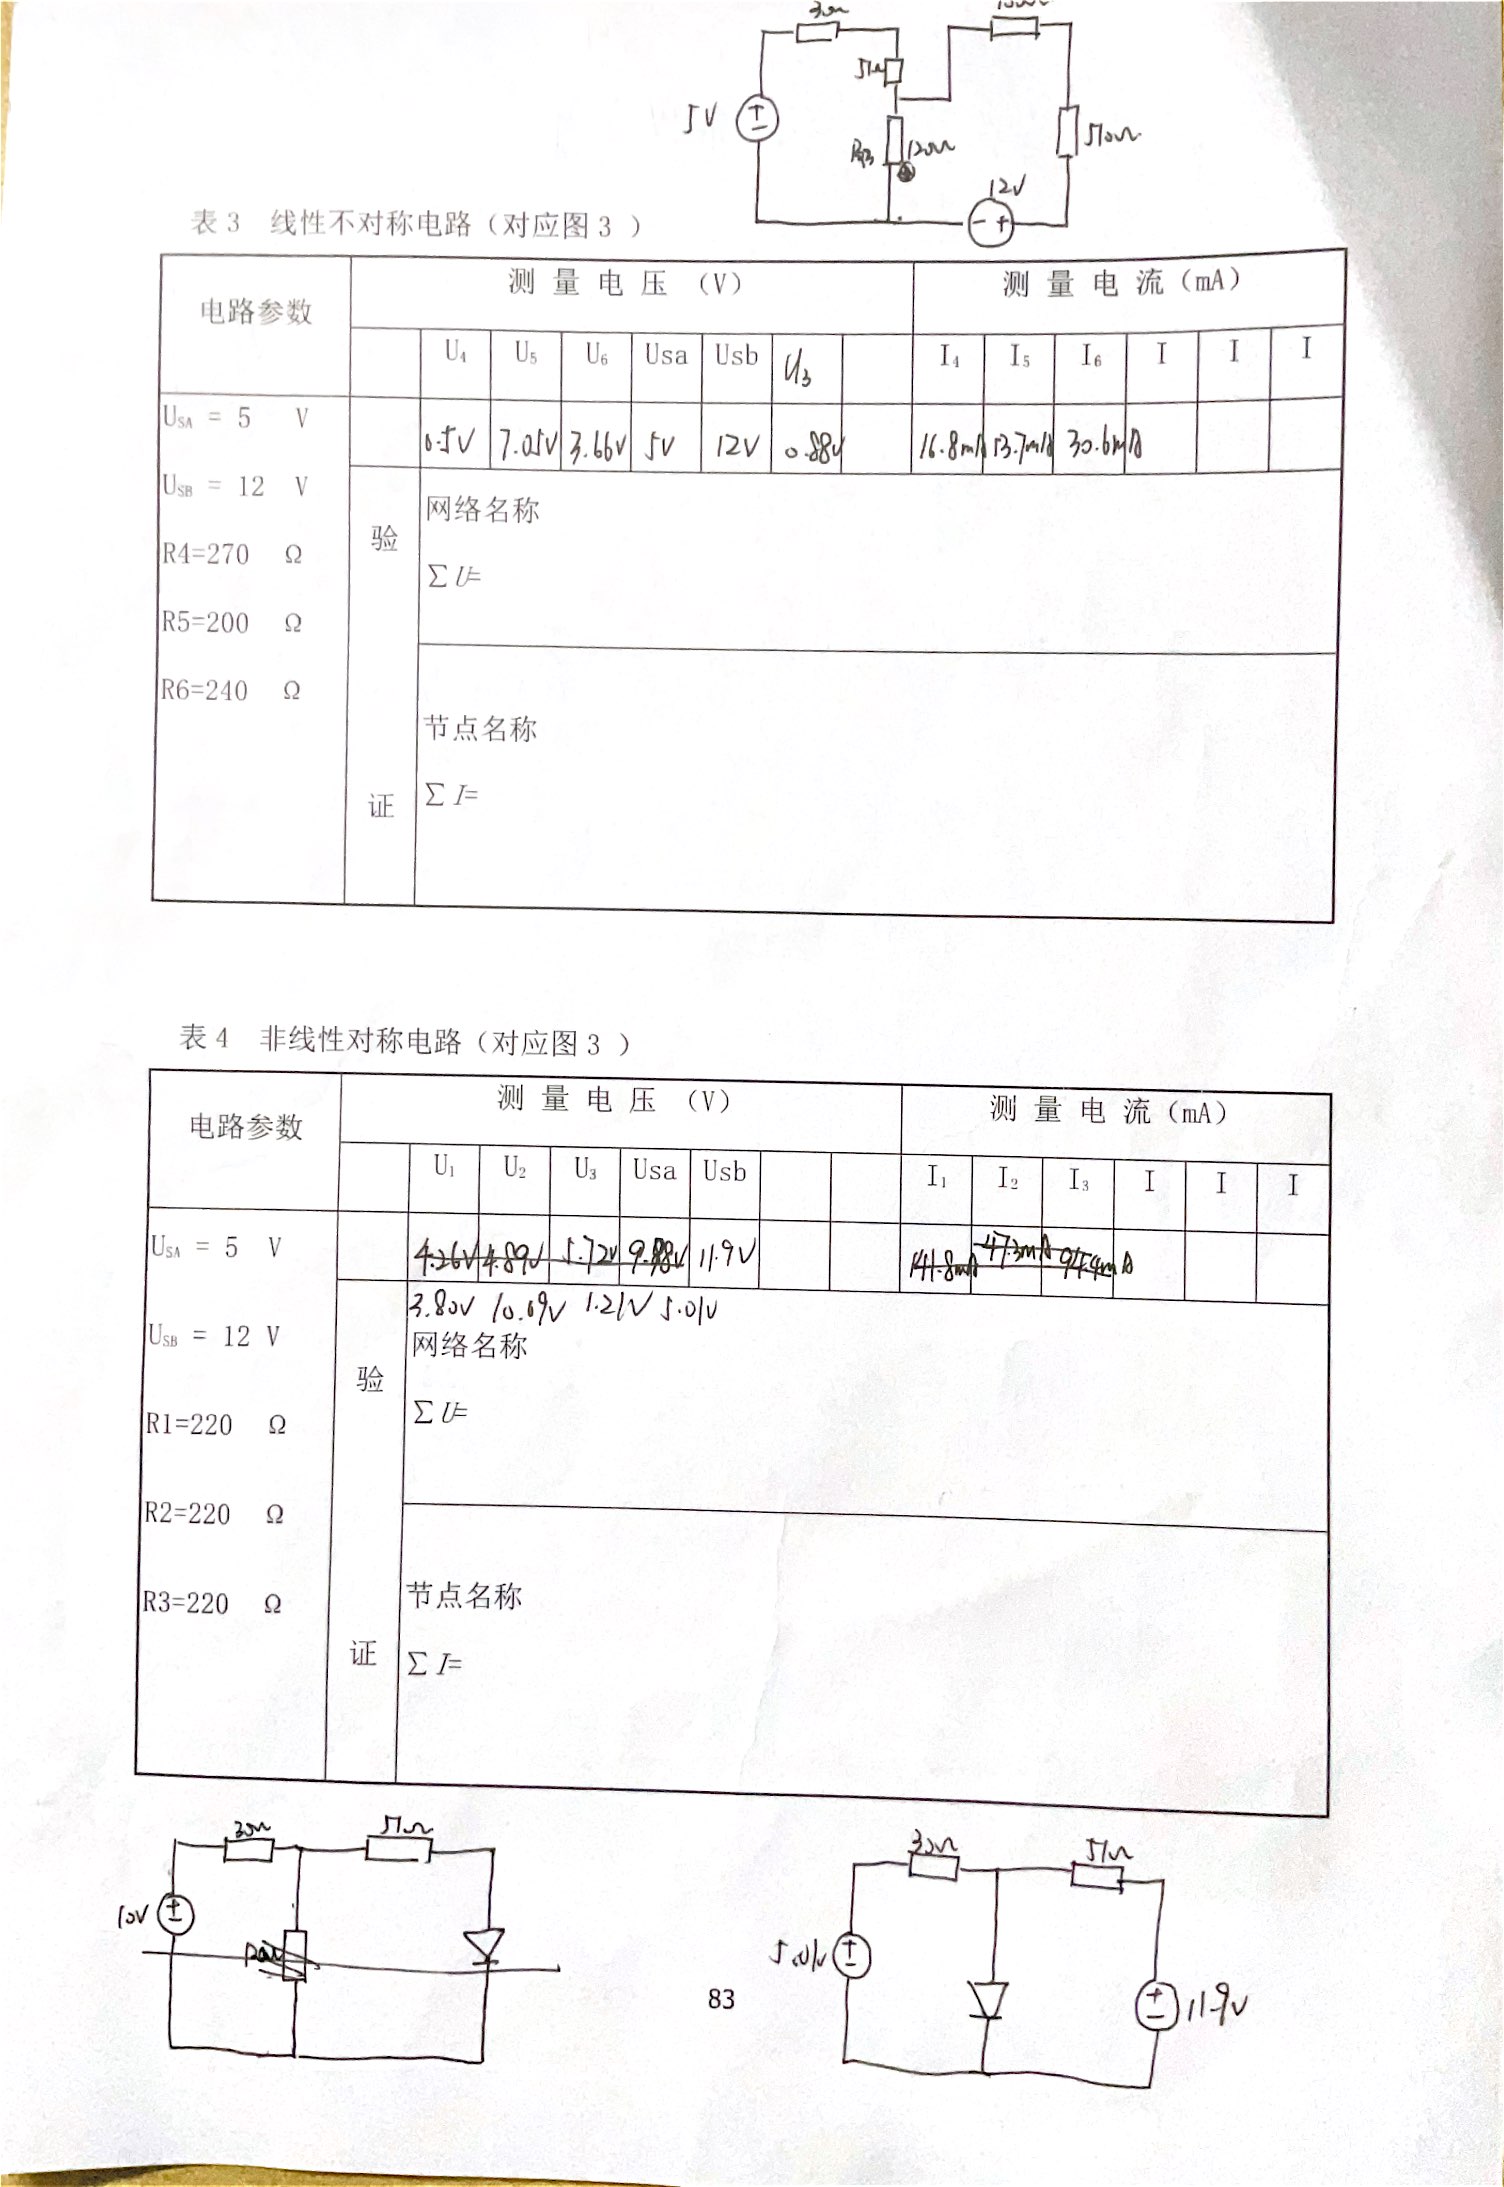 30Ω
51Ω
5V
R3 120Ω
510Ω
12V
表 3 线性不对称电路（对应图 3 ）
电路参数 测 量 电 压 （V） 测 量 电 流（mA）
U₄ U₅ U₆ Usa Usb U₃ I₄ I₅ I₆ I I I
U_SA = 5 V
0.5V 7.05V 3.66V 5V 12V 0.88V 16.8mA 53.7mA 30.6mA
U_SB = 12 V
R4=270 Ω
R5=200 Ω
R6=240 Ω
验
证
网络名称
∑U=
节点名称
∑I=
表 4 非线性对称电路（对应图 3 ）
电路参数 测 量 电 压 （V） 测 量 电 流（mA）
U₁ U₂ U₃ Usa Usb I₁ I₂ I₃ I I I
U_SA = 5 V
4.26V 4.89V 5.72V 9.98V 11.9V 141.8mA 47.3mA 94.4mA
3.80V 10.69V 1.21V 5.01V
U_SB = 12 V
R1=220 Ω
R2=220 Ω
R3=220 Ω
验
证
网络名称
∑U=
节点名称
∑I=
30Ω 51Ω
10V
30Ω 51Ω
5.01V
11.9V
83